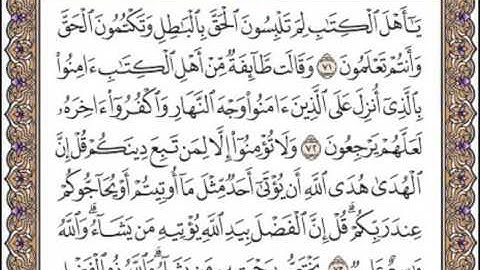 يَٰٓأَهۡلَ ٱلۡكِتَٰبِ لِمَ تَلۡبِسُونَ ٱلۡحَقَّ بِٱلۡبَٰطِلِ وَتَكۡتُمُونَ ٱلۡحَقَّ
وَأَنتُمۡ تَعۡلَمُونَ ٧١ وَقَالَت طَّآئِفَةٞ مِّنۡ أَهۡلِ ٱلۡكِتَٰبِ ءَامِنُواْ
بِٱلَّذِيٓ أُنزِلَ عَلَى ٱلَّذِينَ ءَامَنُواْ وَجۡهَ ٱلنَّهَارِ وَٱكۡفُرُوٓاْ ءَاخِرَهُۥ
لَعَلَّهُمۡ يَرۡجِعُونَ ٧٢ وَلَا تُؤۡمِنُوٓاْ إِلَّا لِمَن تَبِعَ دِينَكُمۡ قُلۡ إِنَّ
ٱلۡهُدَىٰ هُدَى ٱللَّهِ أَن يُؤۡتَىٰٓ أَحَدٞ مِّثۡلَ مَآ أُوتِيتُمۡ أَوۡ يُحَآجُّوكُمۡ
عِندَ رَبِّكُمۡۗ قُلۡ إِنَّ ٱلۡفَضۡلَ بِيَدِ ٱللَّهِ يُؤۡتِيهِ مَن يَشَآءُۗ وَٱللَّهُ